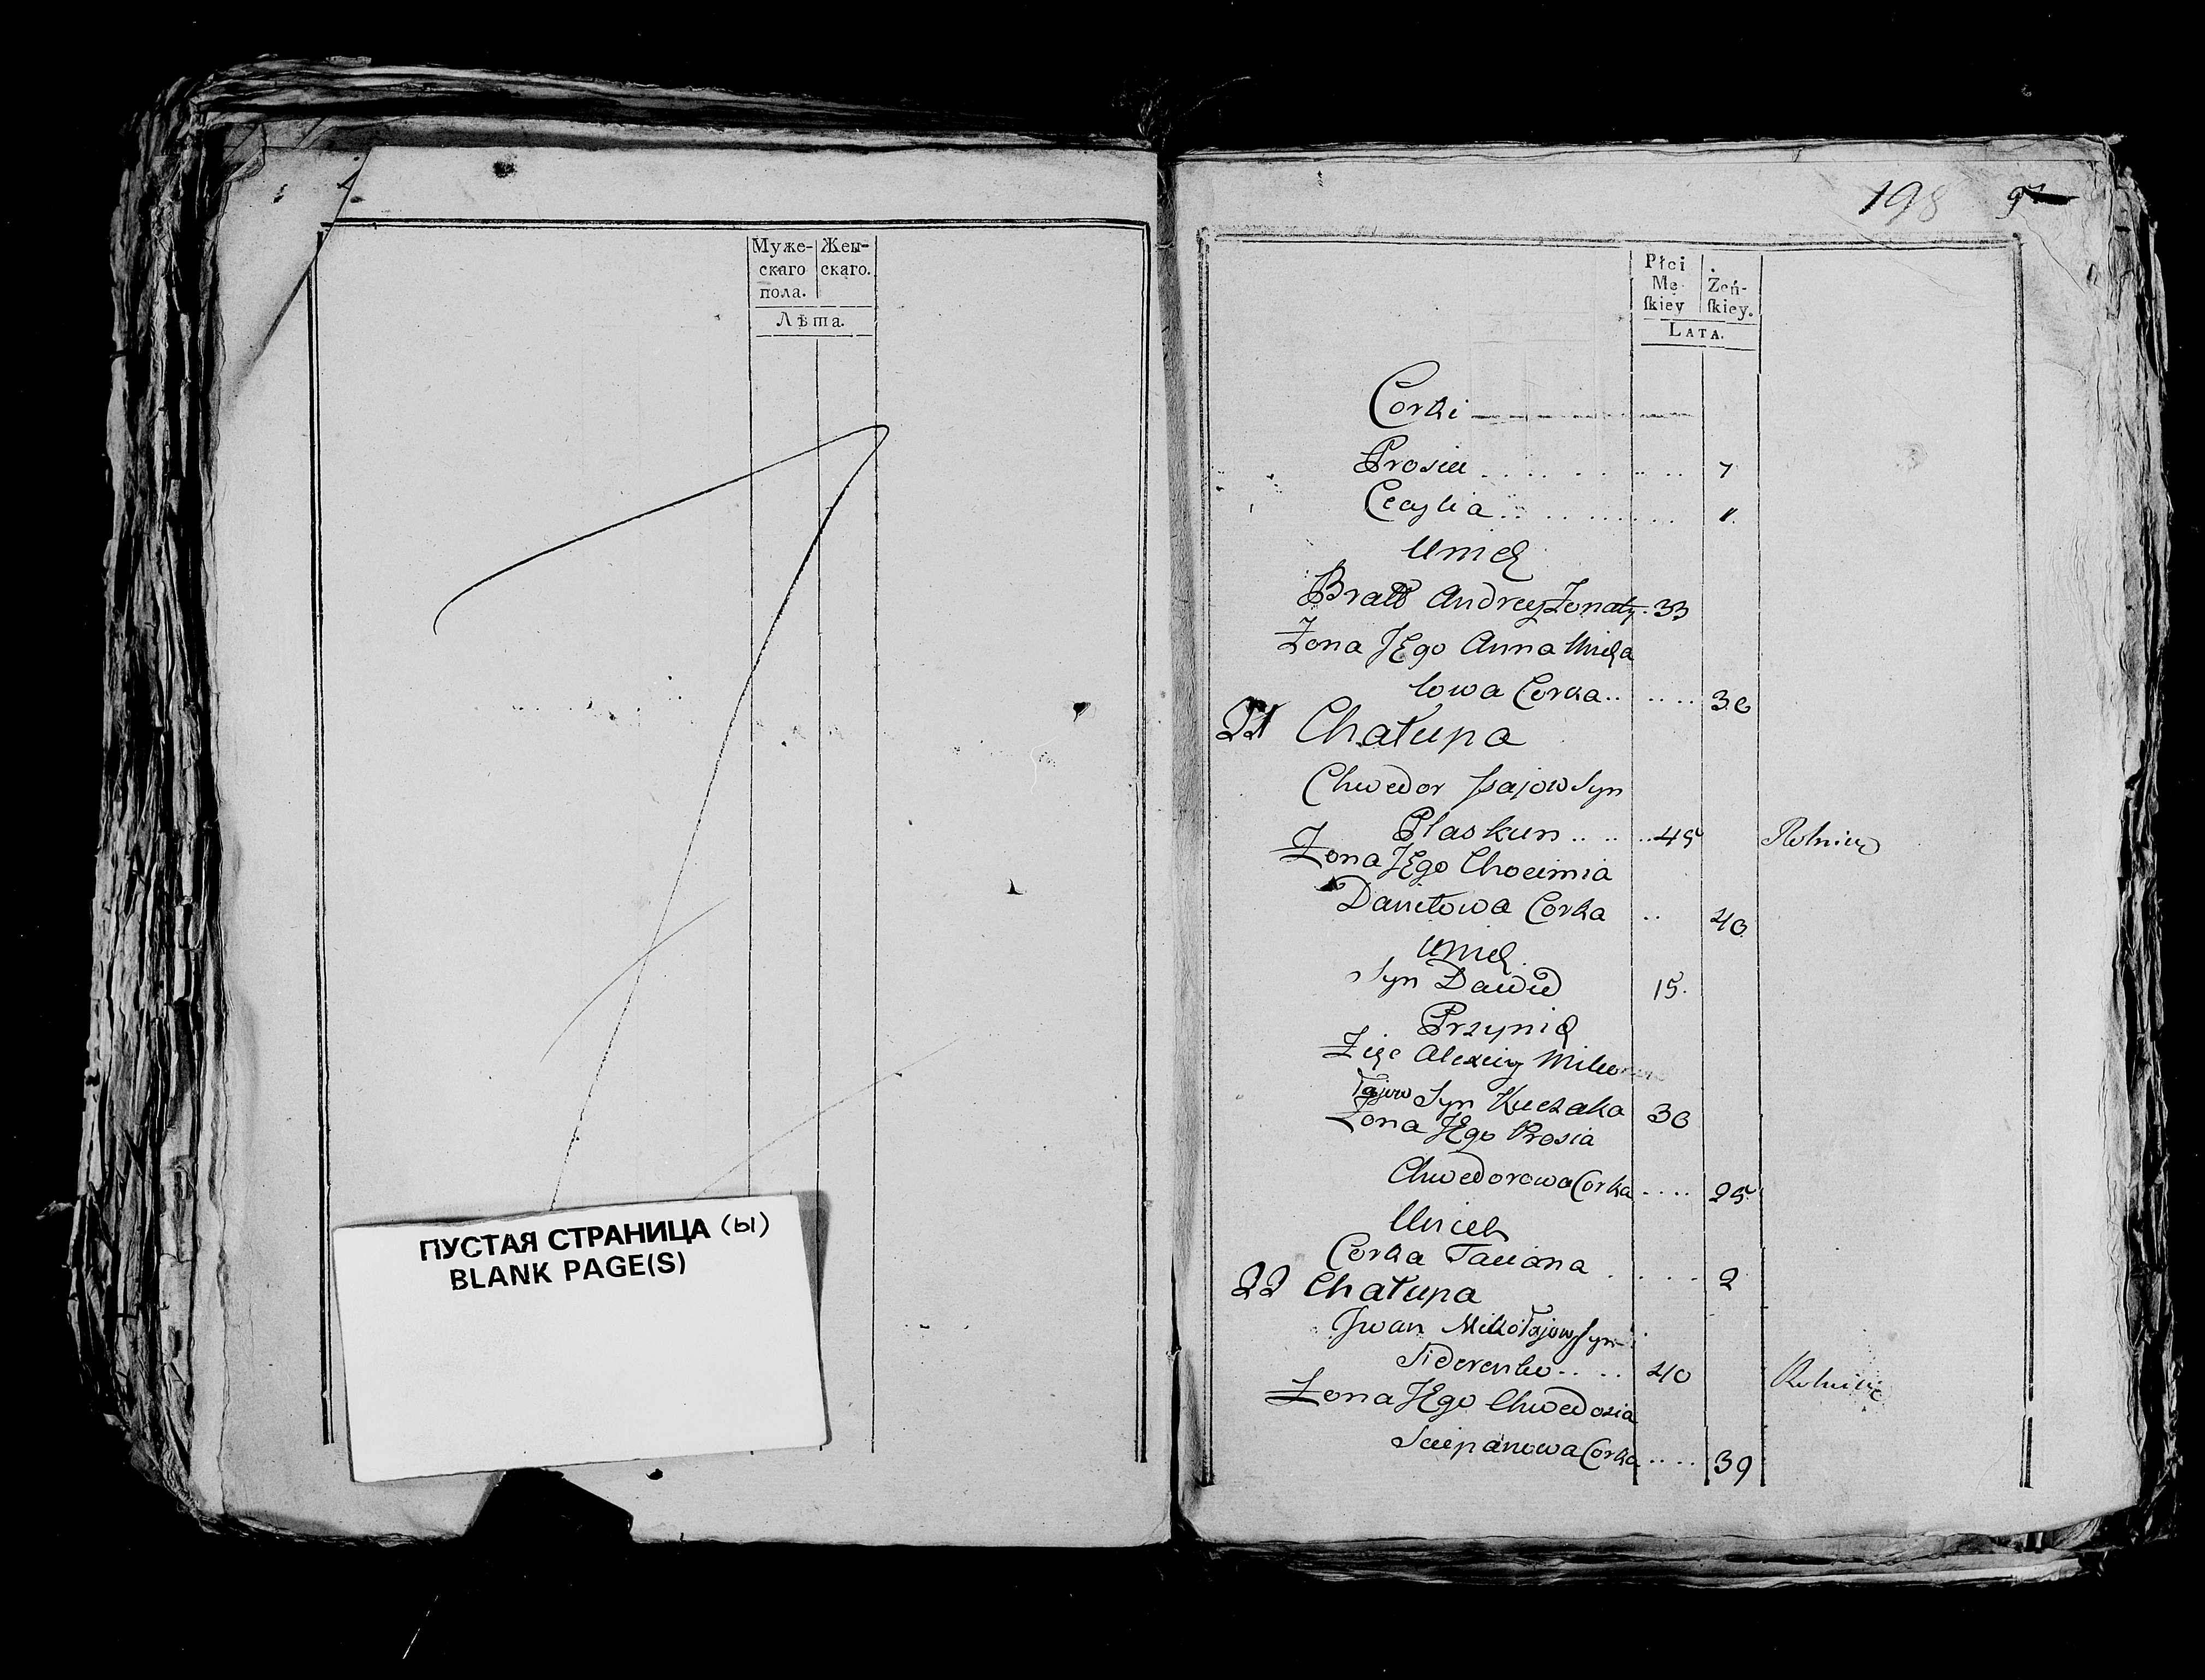 Муже-
скаго
пола.
Жен-
скаго.
Лѣта.
ПУСТАЯ СТРАНИЦА (ы)
BLANK PAGE(S)
198
Płci
Mę-
ſkiey
Żeń-
ſkiey.
LATA.
Corki
Prosia 7
Cecylia
Brat Andrey Żonaty 33
Żona JEgo Anna Micha
łowa Corka 30
21 Chałupa
Chwedor Jsajow Syn
Plaskun 45 Rolnik
Żona JEgo Chocimia
Daniłowa Corka 40
Syn Dawid 15.
Zięć Alexiey Miko
łajow Syn Kuczaka 30
Żona JEgo Prosia
Chwedorowa Corka 25
Corka Taciana 2
22 Chałupa
Jwan Mikołajow Syn
Siderenko 40 Rolnik
Żona JEgo Chwedosia
Sciepanowa Corka 39